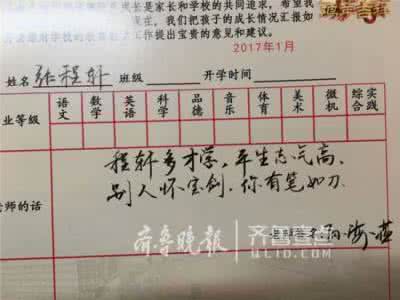 成长是家长和学校的共同追求，希望我
我们把孩子的成长情况汇报如
工作提出宝贵的意见和建议。
2017年1月
姓名 张程轩 班级 开学时间
语文 数学 英语 科学 品德 音乐 体育 美术 微机 综合实践
业等级
程轩多才学，平生志气高，
别人怀宝剑，你有笔如刀
老师的话
齐鲁晚报 齐鲁壹点
QLYD.COM